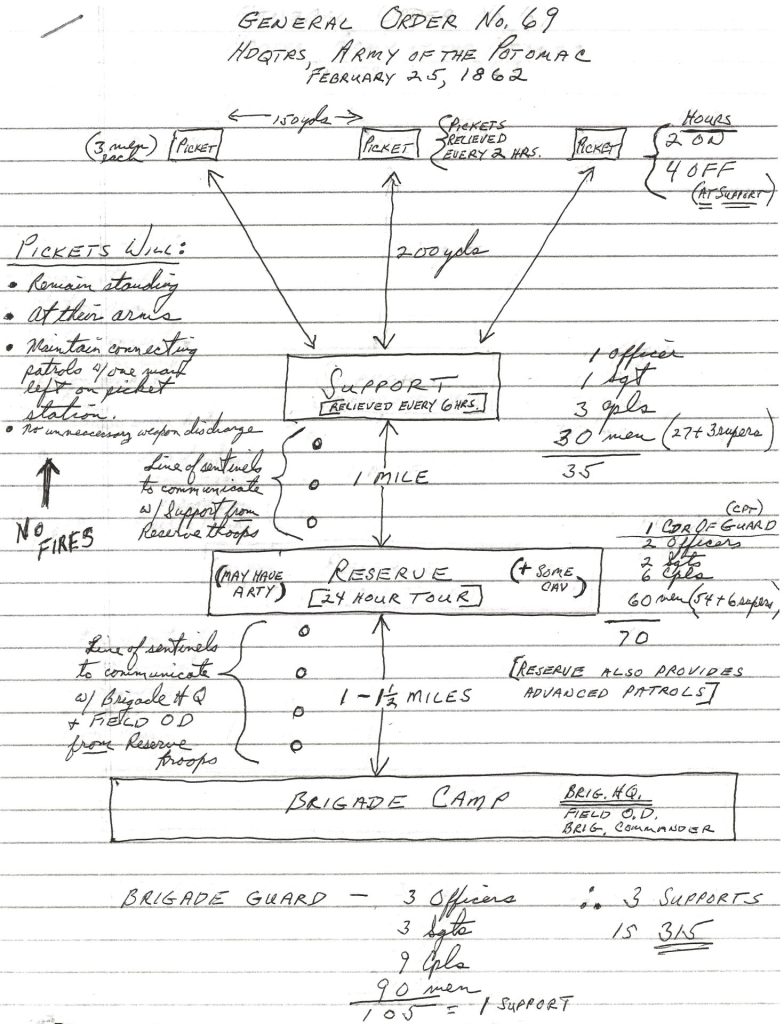 GENERAL ORDER No. 69
HDQTRS, ARMY OF THE POTOMAC
FEBRUARY 25, 1862
150yds
(3 men each)
PICKET
PICKET
{PICKETS
RELIEVED
EVERY 2 HRS.
PICKET
HOURS
2 ON
4 OFF
(AT SUPPORT)
200yds
PICKETS WILL:
• Remain standing
• At their arms
• Maintain connecting
patrols w/ one man
left on picket
station.
• No unnecessary weapon discharge
NO
FIRES
SUPPORT
RELIEVED EVERY 6 HRS.
1 Officer
1 Sgt
3 cpls
30 men (27+3 supers)
35
Line of sentinels
to communicate
w/ Support from
Reserve troops
1 MILE
(MAY HAVE
ARTY)
RESERVE
[24 HOUR TOUR]
(+ SOME
CAV)
(CPT)
1 CDR OF GUARD
2 Officers
2 Sgts
6 Cpls
60 men (54+6 supers)
70
Line of sentinels
to communicate
w/ Brigade HQ
+ FIELD OD
from Reserve
troops
1 - 1½ MILES
[RESERVE ALSO PROVIDES
ADVANCED PATROLS]
BRIGADE CAMP
BRIG. HQ.
FIELD O.D.
BRIG. COMMANDER
BRIGADE GUARD — 3 Officers
3 Sgts
9 Cpls
90 men
105 = 1 SUPPORT
∴ 3 SUPPORTS
IS 315